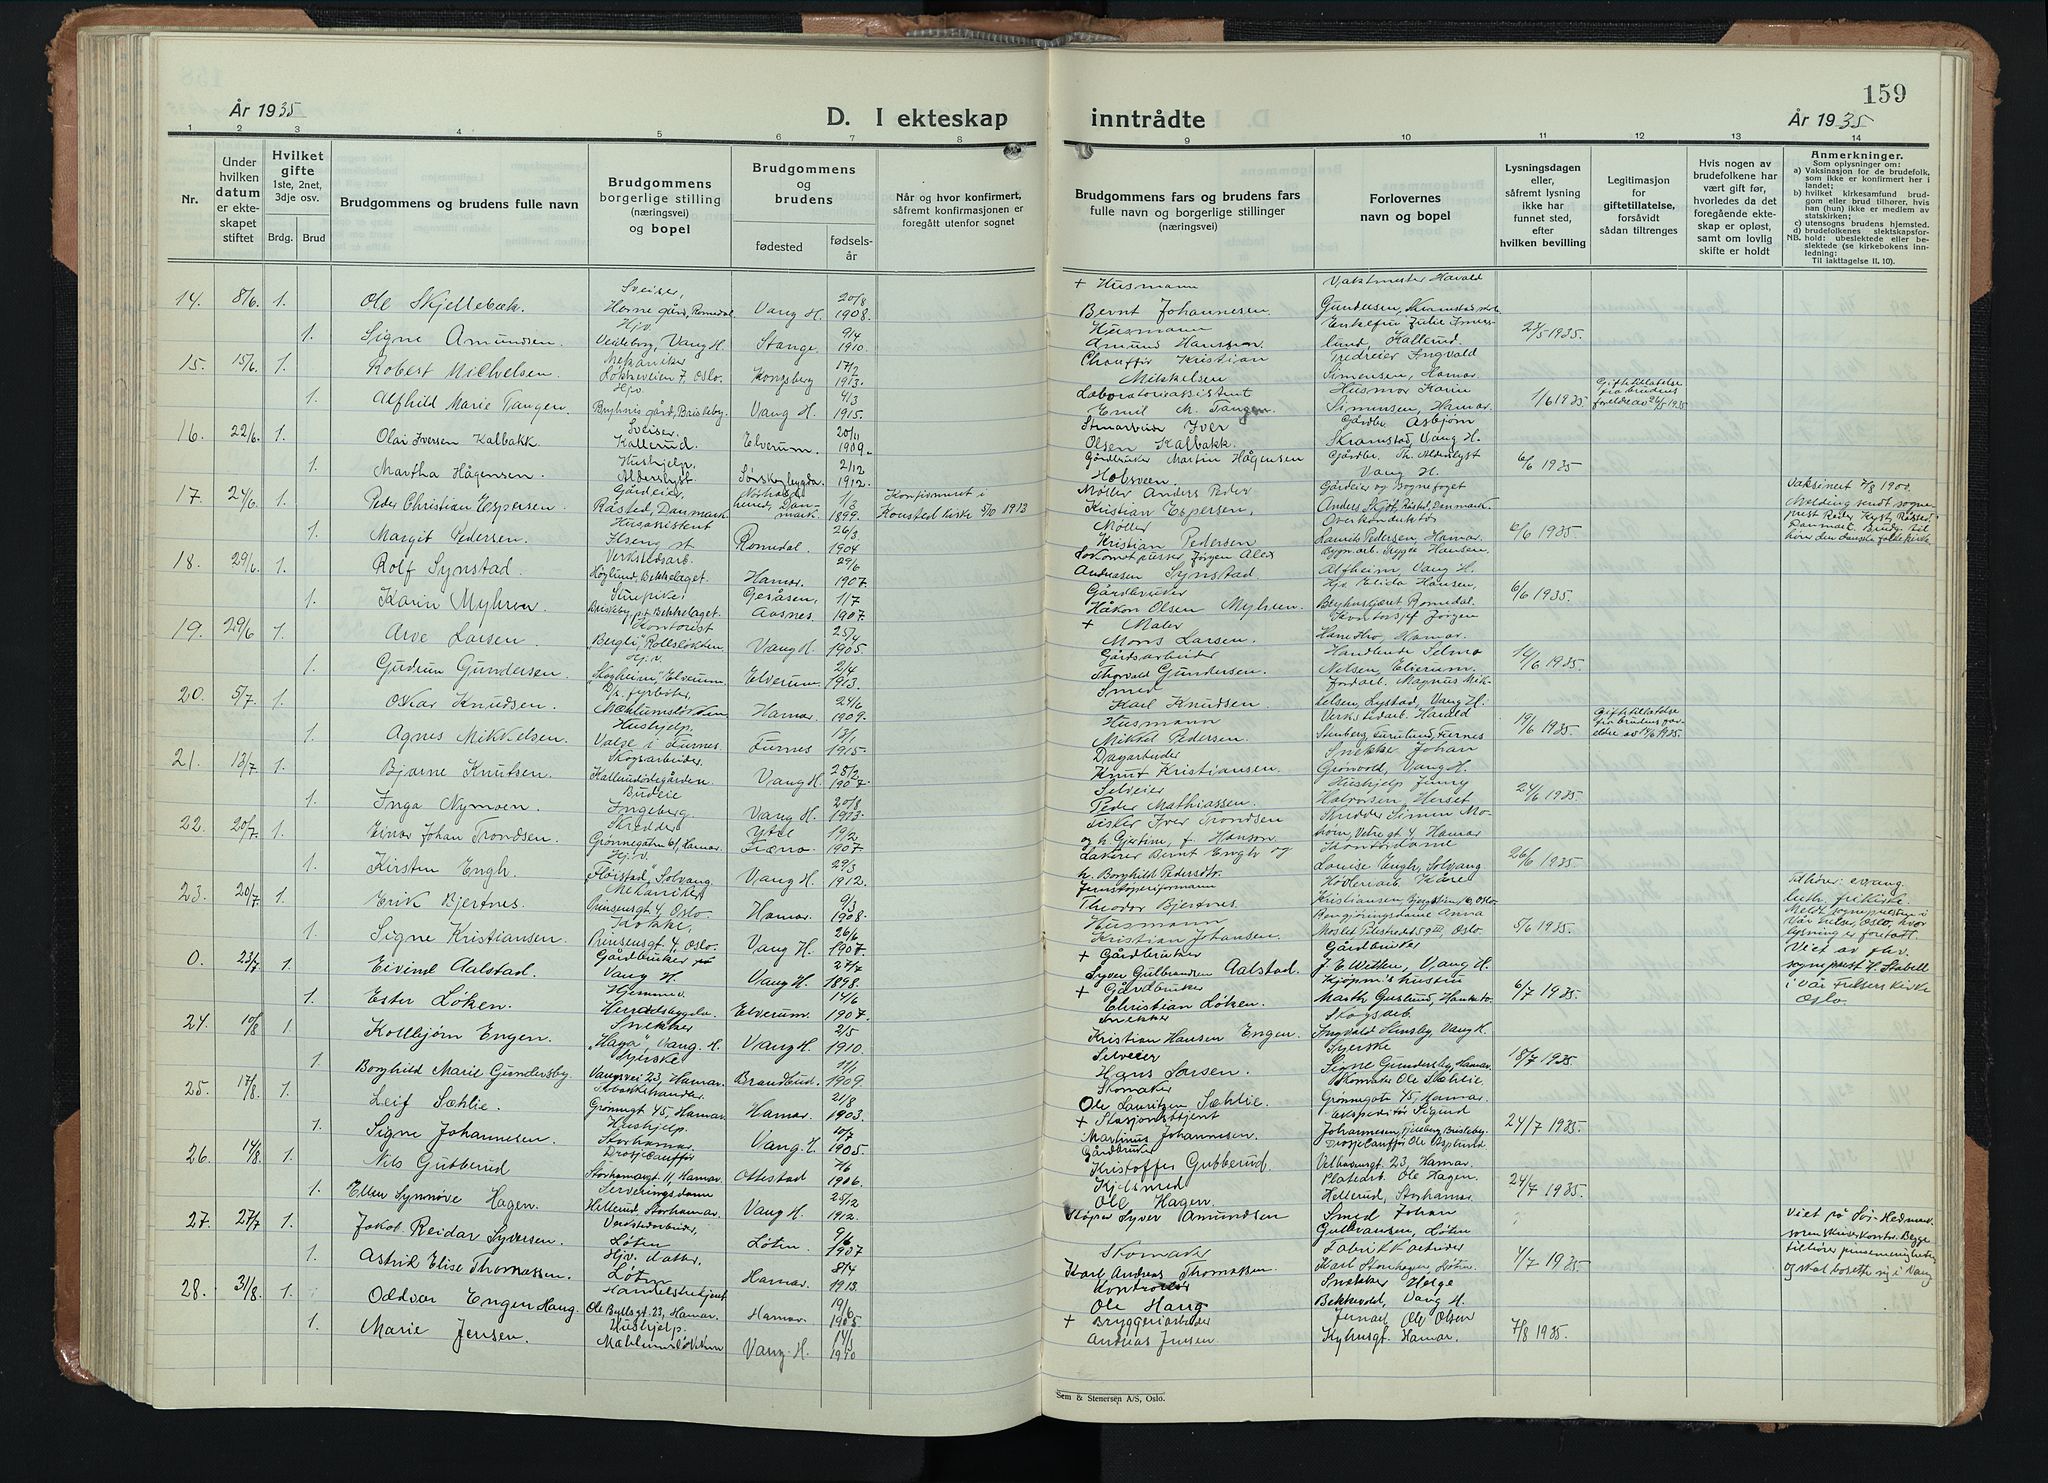 159
År 1935
D. I ekteskap inntrådte
År 1935
1 2 3 4 5 6 7 8 9 10 11 12 13 14
Nr.
Under hvilken datum er ekteskapet stiftet
Hvilket gifte
1ste, 2net, 3dje osv.
Brdg. Brud
Brudgommens og brudens fulle navn
Brudgommens borgerlige stilling (næringsvei) og bopel
Brudgommens og brudens
fødested
fødselsår
Når og hvor konfirmert, såfremt konfirmasjonen er foregått utenfor sognet
Brudgommens fars og brudens fars fulle navn og borgerlige stillinger (næringsvei)
Forlovernes navn og bopel
Lysningsdagen eller, såfremt lysning ikke har funnet sted, efter hvilken bevilling
Legitimasjon for giftetillatelse, forsåvidt sådan tiltrenges
Hvis nogen av brudefolkene har vært gift før, hvorledes da det foregående ekteskap er opløst, samt om lovlig skifte er holdt
Anmerkninger.
Som oplysninger om:
a) Vaksinasjon for de brudefolk, som ikke er konfirmert her i landet;
b) hvilket kirkesamfund brudgom eller brud tilhører, hvis han (hun) ikke er medlem av statskirken;
c) utensogns brudens hjemsted.
d) brudefolkenes slektskapsforhold: ubeslektede eller beslektede (se kirkebokens innledning:
NB.
Til iakttagelse II. 10).
14. 8/6. 1. Ole Skjellebæk. Sveiser, Horne gård, Romedal Vang H. 20/8 1908. + Husmann Bernt Johannesen
1. Signe Amundsen. Hjv. Veideborg, Vang H. Stange. 9/4 1910. Husmann Amund Hanssen 27/5 1935.
15. 15/6. 1. Robert Michelsen. Mekaniker Løkkeveien 7, Oslo. Kongsberg 17/2 1913. Chauffør Kristian Mikkelsen Simensen, Hamar.
1. Alfhild Marie Tangen Hjv. Vang H. 4/3 1915. Laboratorieassistent Emil M. Tangen Husmor Karin Simensen, Hamar. 1/6 1935 Giftetillatelse fra brudens foreldre av 26/5 1935
16. 22/6. 1. Olai Iversen Kalbakk Sveiser. Kallerud. Elverum. 20/11 1909. Iver Olsen Kalbakk Gårdbr. Asbjørn Skramstad, Vang H.
1. Martha Hågensen. Hushjelp. Alderslyst 2/12 1912. Gårdbruker Martin Hågensen Gårdbr. Th. Alderslyst Vang H. 6/6 1935
17. 24/6. 1. Peder Christian Espersen Gårdeier, Råsted, Danmark 1/3 1899. Konfirmert i Kousted kirke 5/10 1913 Møller Anders Peder Kristian Espersen, Gårdeier og Sognefoget Anders Skjøt, Råsted, Danmark. Vaksinert 7/8 1900.
1. Margit Pedersen. Husassistent Ilseng st Romedal. 26/3 1904 Møller Kristian Pedersen Overkonduktør Laurits Pedersen, Hamar. 6/6 1935.
18. 29/6. 1. Rolf Synstad Verkstedarb. Høglund, Bekkelaget. Hamar. 29/6 1907. Jørgen Alex Andreasen Synstad Bygn.arb. Trygve Hansen Alfheim, Vang H.
1. Karin Myhren. Aasnes. 1/7 1907. Gårdbruker Håkon Olsen Myhren Hjv. Elida Hansen, Romedal. 6/6 1935.
19. 29/6 1. Arve Larsen Kontorist "Bergli", Rollsløkken Vang H. 25/4 1905 + Maler Larsen. Jørgen Hamar.
1. Gudrun Gundersen Hjv. "Skogheim", Elverum. Elverum. 2/4 1913. Gårdsarbeider Thorvald Gundersen. Handlende Selma Nilsen, Elverum. 14/6 1935
20. 5/7. 1. Oskar Knudsen. D/s. fyrbøter, Mæhlumsløkken Hamar. 24/6 1909. Smed Karl Knudsen Jordarb. Magnus Mikkelsen, Lystad, Vang H.
1. Agnes Mikkelsen. Hushjelp Valse i Furnes Furnes 13/1 1915. Husmann Mikkel Pedersen. Verkstedarb. Harald Stenberg, Furulund, Furnes 19/6 1935. Giftetillatelse fra brudens foreldre av 19/6 1935.
21. 13/7 1. Bjarne Knutsen Skogsarbeider Kallerudødegården Vang H. 25/2 1907. Dagarbeider Knut Kristiansen Snekker Johan Grønvold, Vang H.
1. Inga Nymoen. Budeie Ingeberg Vang H. 20/8 1903. Selveier Peder Mathiassen. Hushjelp Jenny Halvorsen, Herset 24/6 1935.
22. 20/7. 1. Einar Johan Trondsen. Skredder Grønnegaten 61, Hamar. 19/2 1907. Fisker Iver Trondsen og h. Gjertine, f. Hanson Skredder Simen Hamar
1. Kirsten Engh. Hjv. "Fløistad", Solvang Vang H. 29/3 1912. Lakerer Bernt Engh og h. Borghild Pedersdtr. Kontordame Louise Engh, Solvang 26/6 1935
23. 20/7. 1. Erik Bjertnes. Mekaniker Prinsensgt 4, Oslo. Hamar. 9/3 1908. Theodor Bjertnes. Høvleriarb. Kåre Kristiansen Tilhører evang. luth. frikirke.
1. Signe Kristiansen. Kokke. Prinsensgt 4, Oslo. Vang H. 26/6 1907. Husmann Kristian Johansen. Rengjøringsdame Anna 5/6 1935.
0. 23/7 1. Eivind Aalstad. Gårdbruker på Vang H. Vang H. 27/7 1898. + Gårdbruker Syver Gulbrandsen Aalstad. Gårdbruker J. E. Wetten, Vang H. Viet av fhv. sogneprest H. Stabell i Vår Frelsers kirke Oslo.
1. Ester Løken. Hjemmev. Elverum. 14/6 1907. + Gårdbruker Christian Løken. Kjøpm's hustru 6/7 1935
24. 10/8 1. Kolbjørn Engen. Snekker "Haga", Vang. H. Vang H. 2/5 1910. Snekker Kristian Hansen Engen. Skogsarb. Ingvald Stensby, Vang H.
1. Borghild Marie Gundersby. Syerske Vangsvei 23, Hamar. Brandbud. 11/1 1909. Selveier Hans Larsen. Syerske Signe Gundersby, Hamar. 18/7 1935
25. 17/8. 1. Leif Sæhlie. Grønnegt 45, Hamar Hamar. 21/8 1903. Skomaker Ole Lauritzen Sæhlie. Skomaker Ole Sæhlie Grønnegate 45, Hamar.
1. Signe Johannesen. Hushjelp. Storhamar Vang. H. 10/7 1905 + Stasjonsbetjent Martinus Johannesen. Ekspeditør Sigurd Johannesen 24/7 1935.
26. 14/8. 1. Nils Gubberud Drosjechauffør Storhamargt. 11, Hamar. Ottestad 1906. Gårdbruker Kristoffer Gubberud. Drosjechauffør Ole Asplund Vethavensgt. 23, Hamar.
1. Ellen Synnøve Hagen. Serveringsdame Hellerud, Storhamar. Vang H. 25/12 1912. Kjelsmed Ole Hagen. Platearb. Ole Hagen. Hellerud, Storhamar 24/7 1935.
27. 27/7 1. Jakob Reidar Syversen. Verkstedarbeider, Løten Løten. 9/6 1907 Syver Amundsen Smed Johan Gulbransen, Løten Viet på Sør-Hedmark sorenskriverkontor. Begge tilhører pinsemenigheten og skal bosette sig i Vang
1. Astrid Elise Thomassen. Hjv. datter. Løten Hamar. 8/4 1913. Skomaker Karl Andreas Thomassen. Fabrikkarbeider Karl Stenhagen, Løten. 4/7 1935
28. 31/8. 1. Oddvar Engen Haug. Handelsbetjent Ole Bullsgt. 23, Hamar. Hamar. 19/6 1905. Kontrollør Ole Haug Snekker Helge Bekkevold, Vang H.
1. Marie Jensen. Hushjelp. Mæhlumsløkken Vang. H. 14/3 1910 + Bryggeriarbeider Andreas Jensen Ole Olsen Kyhusgt. Hamar. 7/8 1935.
Sem & Stenersen A/S, Oslo.